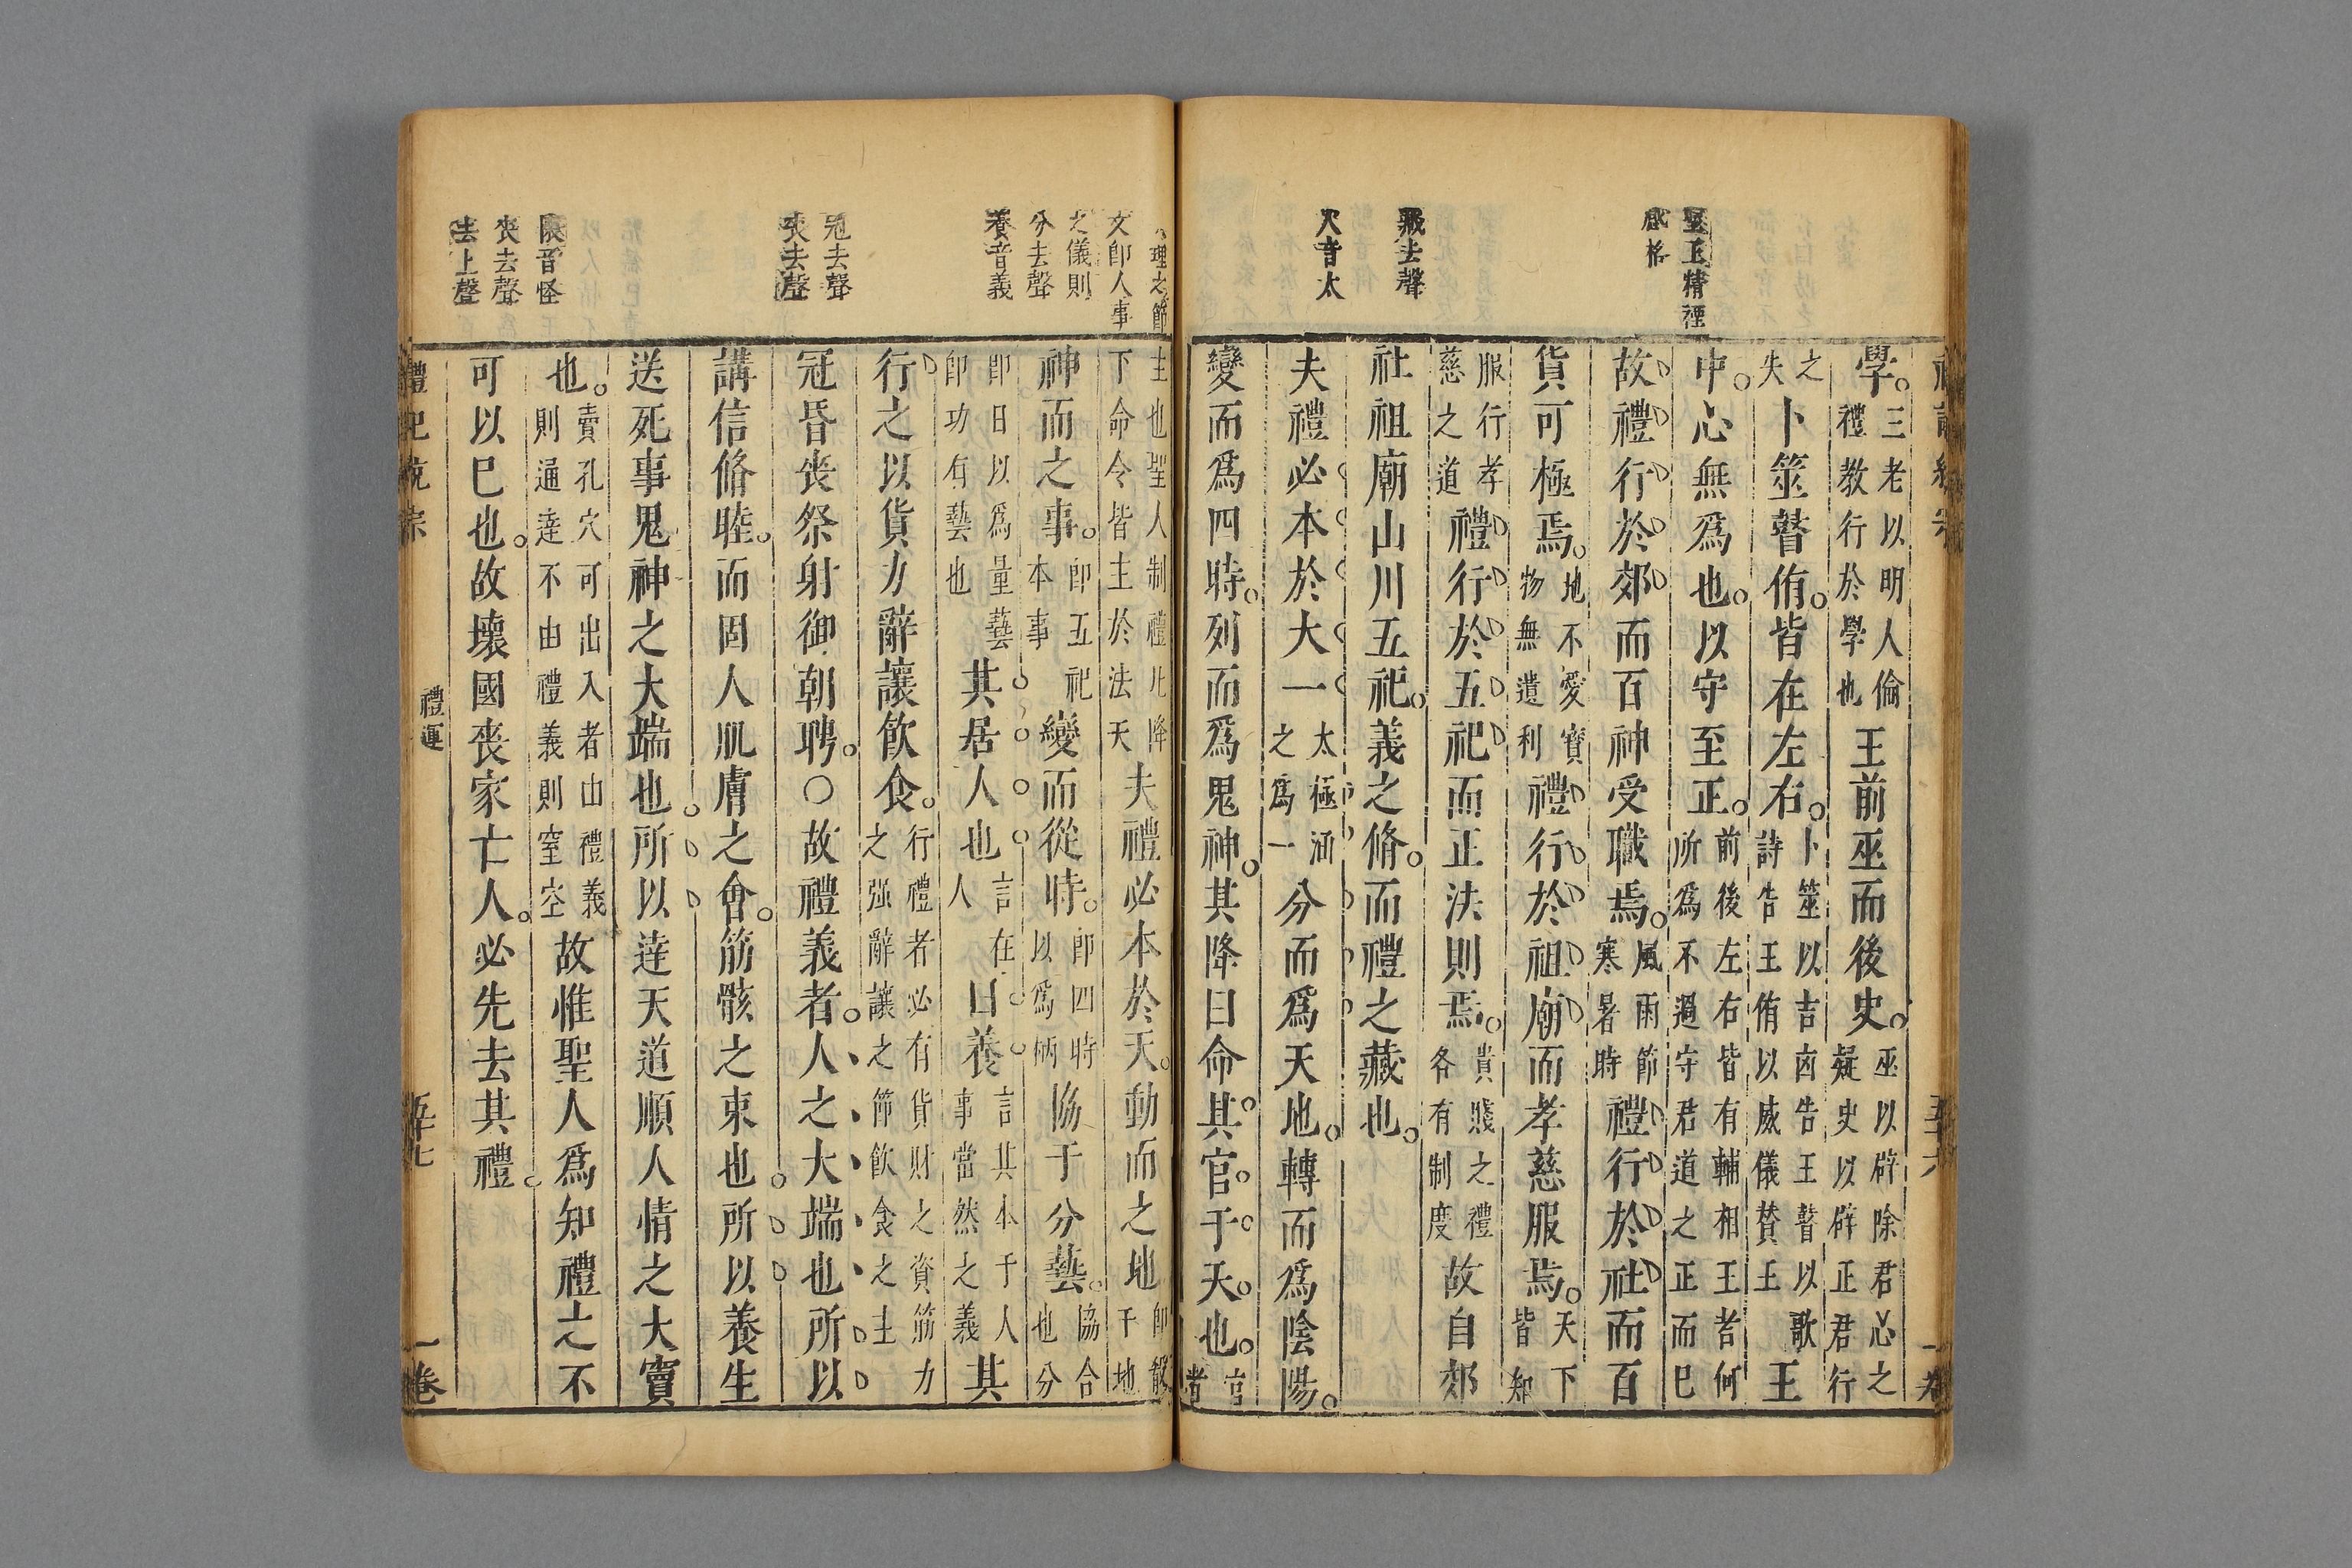 聖王精禋
感格
藏去聲
大音太
學。三老以明人倫禮教行於學也王前巫而後史。巫以辟除君心之疑史以辟正君行
之失卜筮瞽侑。皆在左右。卜筮以吉凶告王瞽以歌詩告王侑以威儀賛王王
中。心無爲也。以守至正。前後左右皆有輔相王者何所爲不過守君道之正而已
故禮行於郊而百神受職焉。風雨節寒暑時禮行於社而百
貨可極焉。地不愛寶物無遺利禮行於祖廟而孝慈服焉。天下皆知
服行孝慈之道禮行於五祀而正法則焉。貴賤之禮各有制度故自郊
社祖廟山川五祀。義之脩。而禮之藏也。
夫禮必本於大一太極涵之爲一分而爲天地。轉而爲陰陽。
變而爲四時。列而爲鬼神。其降曰命。其官于天也。官
五十六
理之節
文即人事
之儀則
分去聲
養音義
冠去聲
喪去聲
壞音怪
喪去聲
去上聲
主也聖人制禮凡降下命令皆主於法天夫禮必本於天。動而之地即殽于地
神而之事。即五祀本事變而從時。即四時以爲柄協于分藝。協合也分
即日以爲量藝即功有藝也其居人也言在人曰養言其本于人事當然之義其
行之以貨力辭讓飲食。行禮者必有貨財之資筋力之强辭讓之節飲食之主
冠昏喪祭射御朝聘。○故禮義者。人之大端也所以
講信脩睦。而固人肌膚之會。筋骸之束也。所以養生
送死事鬼神之大端也。所以達天道順人情之大竇
也。竇孔穴可出入者由禮義則通達不由禮義則窒空故惟聖人爲知禮之不
可以已也。故壞國喪家亡人。必先去其禮。
禮記統宗
禮運
五十七
一卷